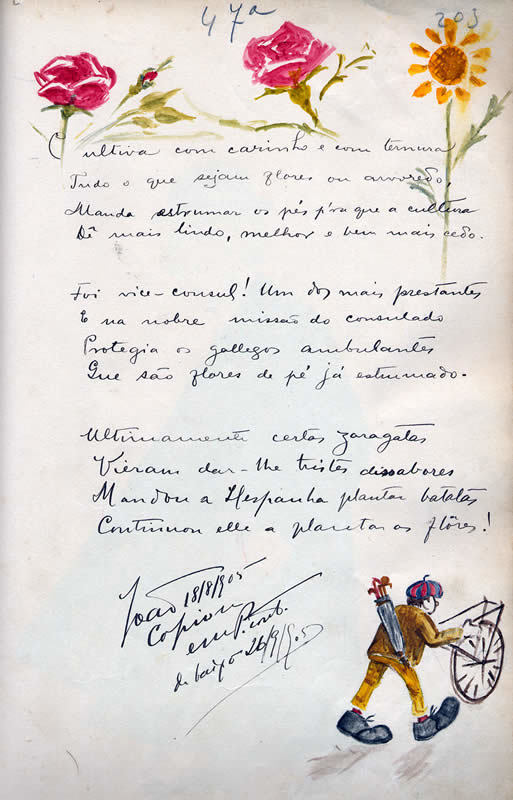 47ª
203
Cultiva com carinho e com ternura
Tudo o que sejam flores ou arvoredo,
Manda estrumar os pés p'ra que a cultura
Dê mais lindo, melhor e bem mais cedo.
Foi vice-consul! Um dos mais prestantes
E na nobre missão do consulado
Protegia os gallegos ambulantes
Que são flores de pé já estrumado.
Ultimamente certas zaragatas
Vieram dar-lhe tristes dissabores
Mandou a Hespanha plantar batatas
Continuou elle a plantar as flôres!
João 18/8/905
Copiou
em
de baixo 26/9/905